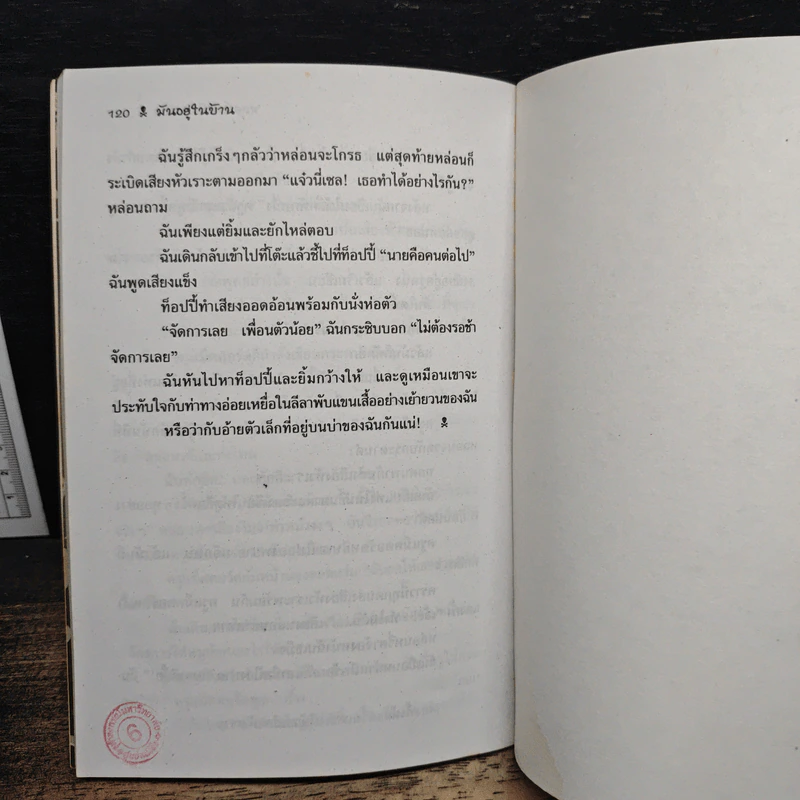 120 มันอยู่ในบ้าน
ฉันรู้สึกเกร็งๆกลัวว่าหล่อนจะโกรธ แต่สุดท้ายหล่อนก็
ระเบิดเสียงหัวเราะตามออกมา “แจ๋วนี่เซล! เธอทำได้อย่างไรกัน?”
หล่อนถาม
ฉันเพียงแต่ยิ้มและยักไหล่ตอบ
ฉันเดินกลับเข้าไปที่โต๊ะแล้วชี้ไปที่ท็อปปี้ “นายคือคนต่อไป”
ฉันพูดเสียงแข็ง
ท็อปปี้ทำเสียงออดอ้อนพร้อมกับนั่งห่อตัว
“จัดการเลย เพื่อนตัวน้อย” ฉันกระซิบบอก “ไม่ต้องรอช้า
จัดการเลย”
ฉันหันไปหาท็อปปี้และยิ้มกว้างให้ และดูเหมือนเขาจะ
ประทับใจกับท่าทางอ่อยเหยื่อในลีลาพับแขนเสื้ออย่างเย้ายวนของฉัน
หรือว่ากับอ้ายตัวเล็กที่อยู่บนบ่าของฉันกันแน่!
6